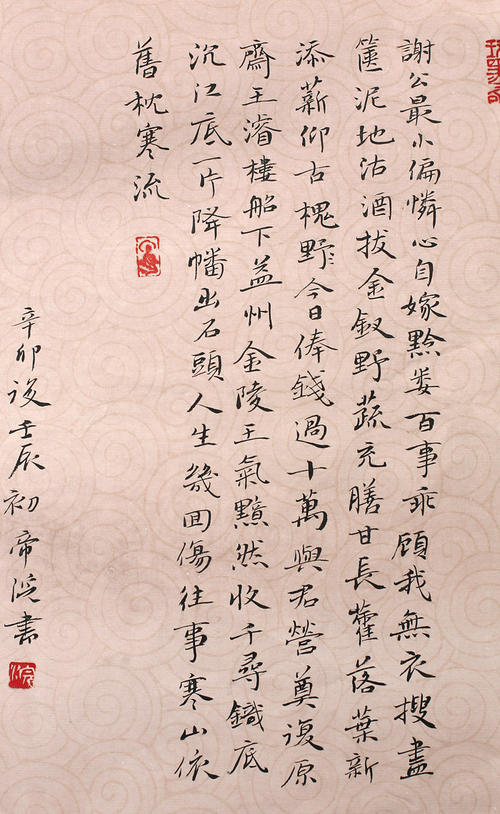 謝公最小偏憐心自嫁黔婁百事乖顧我無衣搜盡
篋泥地沽酒拔金釵野蔬充膳甘長藿落葉新
添薪仰古槐野〻今日俸錢過十萬與君營奠復原
齋王濬樓船下益州金陵王氣黯然收千尋鐵底
沉江底一片降幡出石頭人生幾回傷往事寒山依
舊枕寒流
辛卯後壬辰初帝浣書